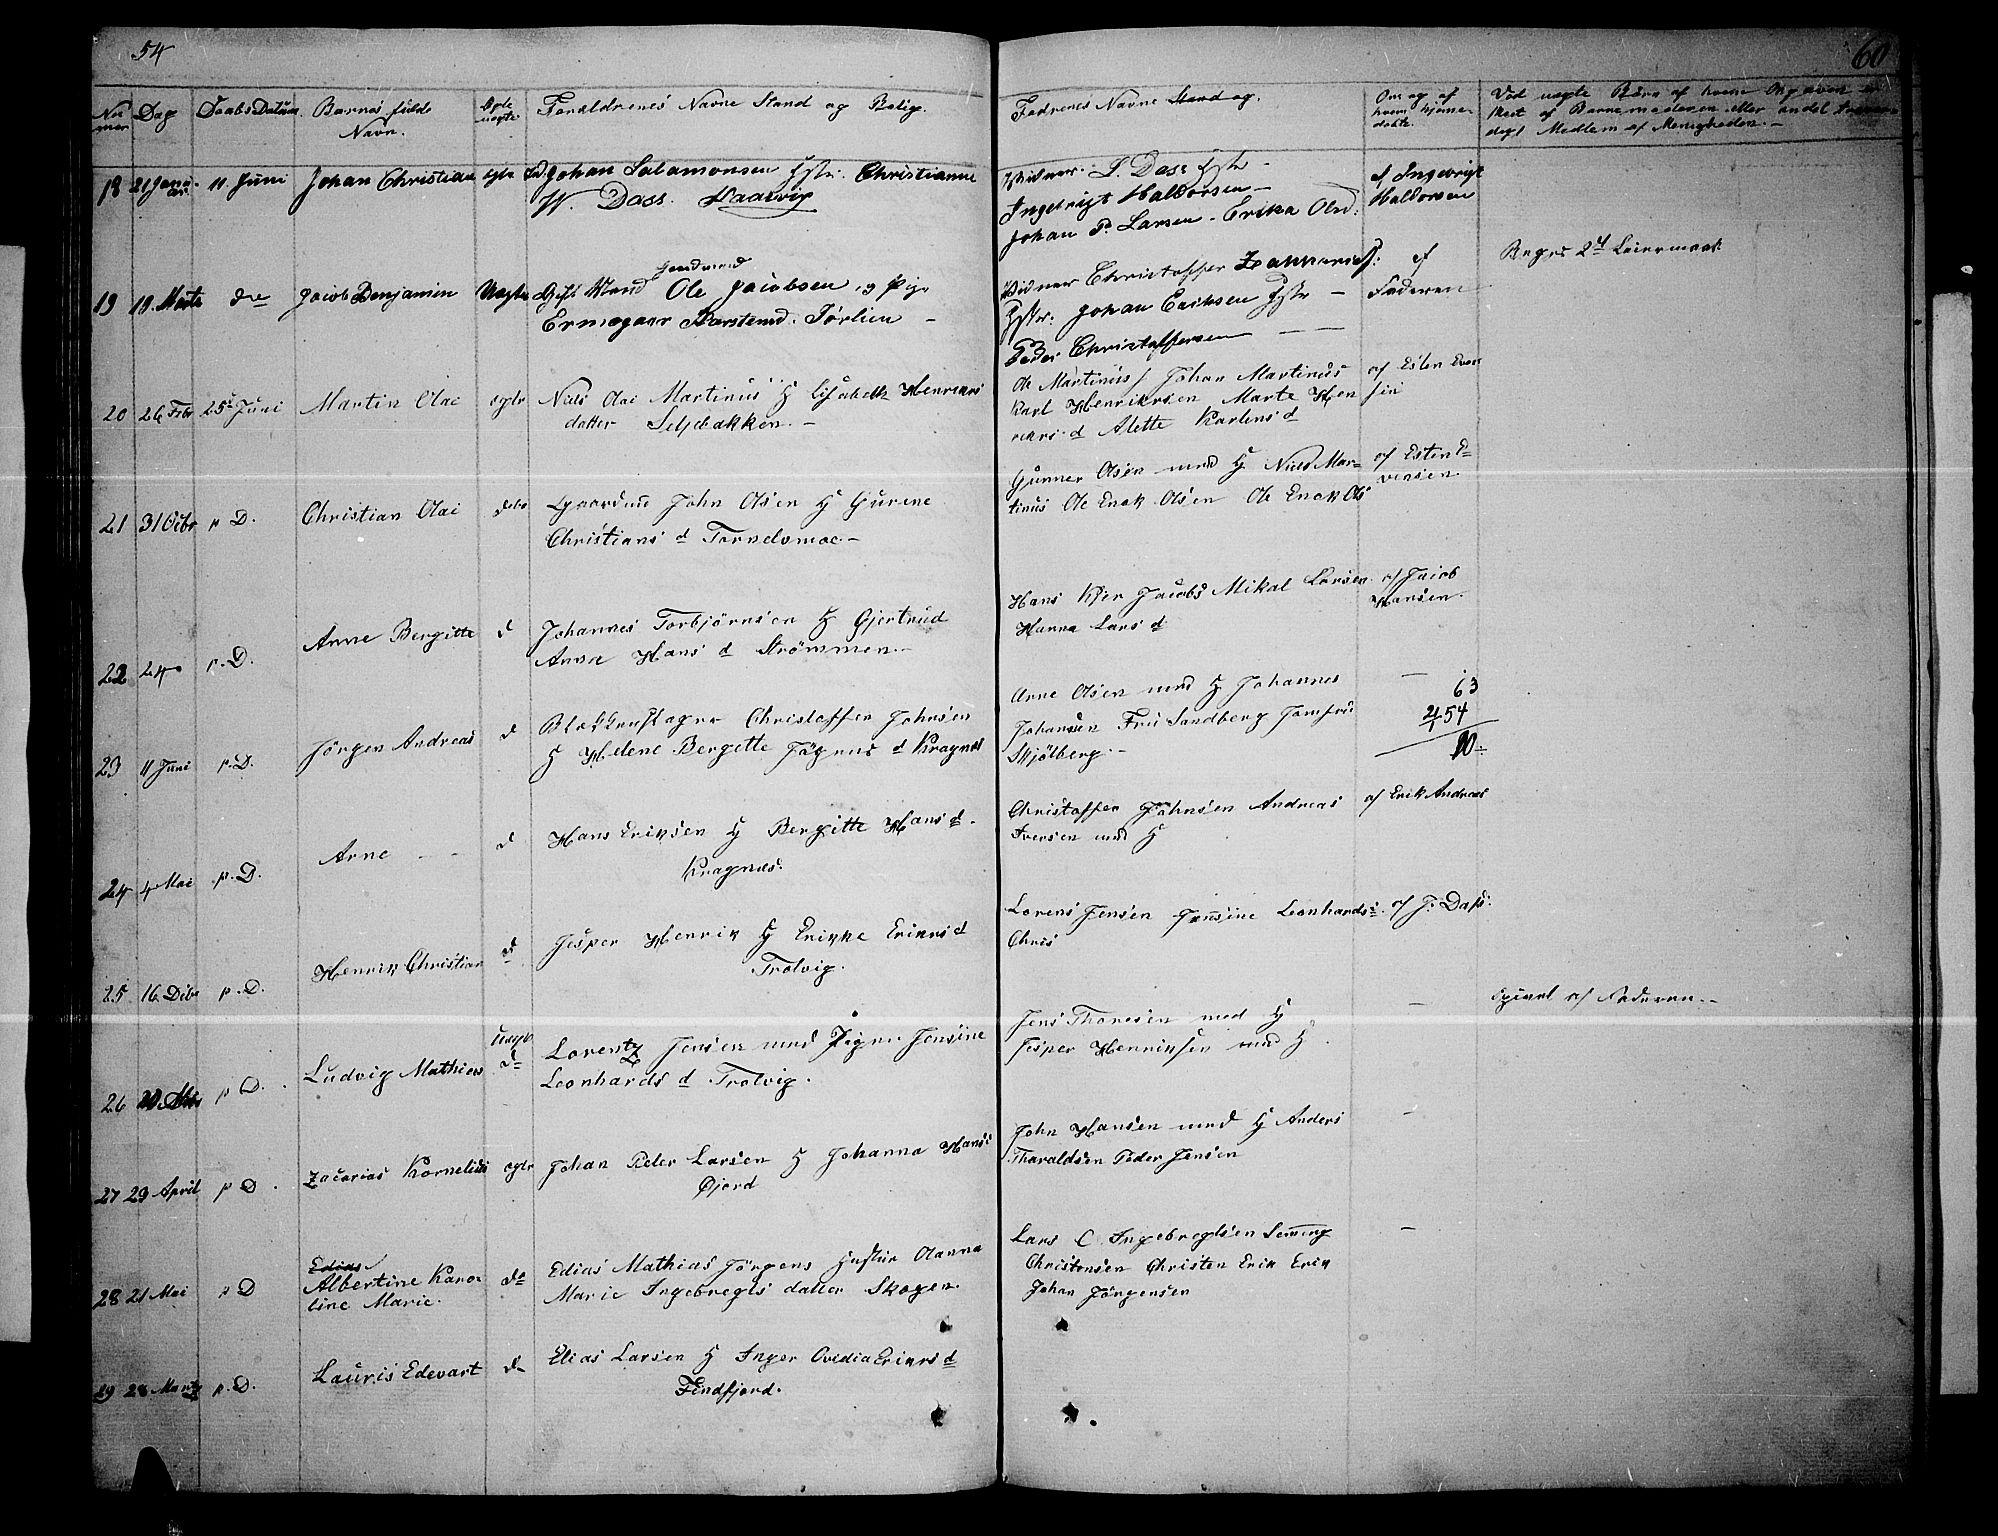 54
60
Nu
mer
Dag
Daabs Datum
Barnes fulde
Navn.
Egte
uegte
Foraldrenes Navne Stand og Bolig.
Fadrenes Navne Stand og.
Om og af
hvem hjemme-
døbte.
Ved uegte Børn af hvem Opgaven er
skeet af Barnemoderen eller andet
Medlem af Menigheden.
18 21 Janu 11 Juni Johan Christian egte Johan Salamonsen Hstr. Christianne
W. Dass. Haarvig
J. Dass Hstr
Ingebrigt Haldorsen
Johan P. Larsen. Erika Olsd.
af Ingebrigt
Haldorsen
19 18 Marts dto Jacob Benjamin Uegte Gift Mand Ole Jacobsen og Pige
Ermegaar Karstensd. Tørlien
Vidner Christoffer Zacharies
Hstr: Johan Erichsen Hstr
Peder Christoffersen
af
Faderen
2d Leiermaal
20 26 Febr 25 Juni Martin Olai egte Niels Olai Martinus H Elisabeth Henriks
datter Seljebakken.
Ole Martinus Johan Martinus
Karl Henriksen Marte Hen
riks d Alette Karlens d
af Esten Even
sen
21 31 Octbr p D. Christian Olai John Olsen H Gurene
Christians d Tornelvmoe
Gunner Olsen med H Niels Mar-
tinus Ole Enok Olsen Ole Enok Ols
af Esten E-
vensen
22 24 p. D. Anne Bergitte d Johannes Torbjörnsen H Gjertrud
Anna Hans d Strömmen.
Hans Peer Jacobs Mikal Larsen
Hanna Lars d
af Jacob
Hansen.
23 11 Juni p. D. Jörgen Andreas d Christoffer Johnsen
H Helene Bergitte Jörgens d Kragnæs
Arne Olsen med H Johannes
Johansen Fru Sandberg Jomfru
Skjölberg.
63
54
24 4 Mai p. D. Arne d Hans Eriksen H Bergitte Hans d.
Kragnæs.
Christoffer Johnsen Andreas
Iversen med H
af Erik Andreas
25 16 Decbr p. D. Henrik Christian d Jesper Henrik H Erikka Eriks d
Trolvig.
Lorens Jensen Jensine Leonhards
Chris
af J. Dass.
26 p D. Ludvig Mathias uegte Lorentz Jensen med Pigen Jensine
Leonhards d Trolvig.
Jens Thoresen med H
Jesper Henriksen med H
af Faderen.
27 29 April p D. Zacarias Kornelius egte Johan Peter Larsen H Johanna Hans
Øjord
John Hansen med H Anders
Tharaldsen Peder Jensen
28 21 Mai p D Edias
Albertine Karo
line Marie.
do Edias Mathias Jörgens Hustur Olanna
Marie Ingebregts datter Skogen.
Lars C Ingebregtsen Seming
Christensen Christen Erik Erik
Johan Jörgensen
29 28 Marts p. D. Lauris Edevart d Elias Larsen H Inger Ovedia Eriks d
Findfjord.